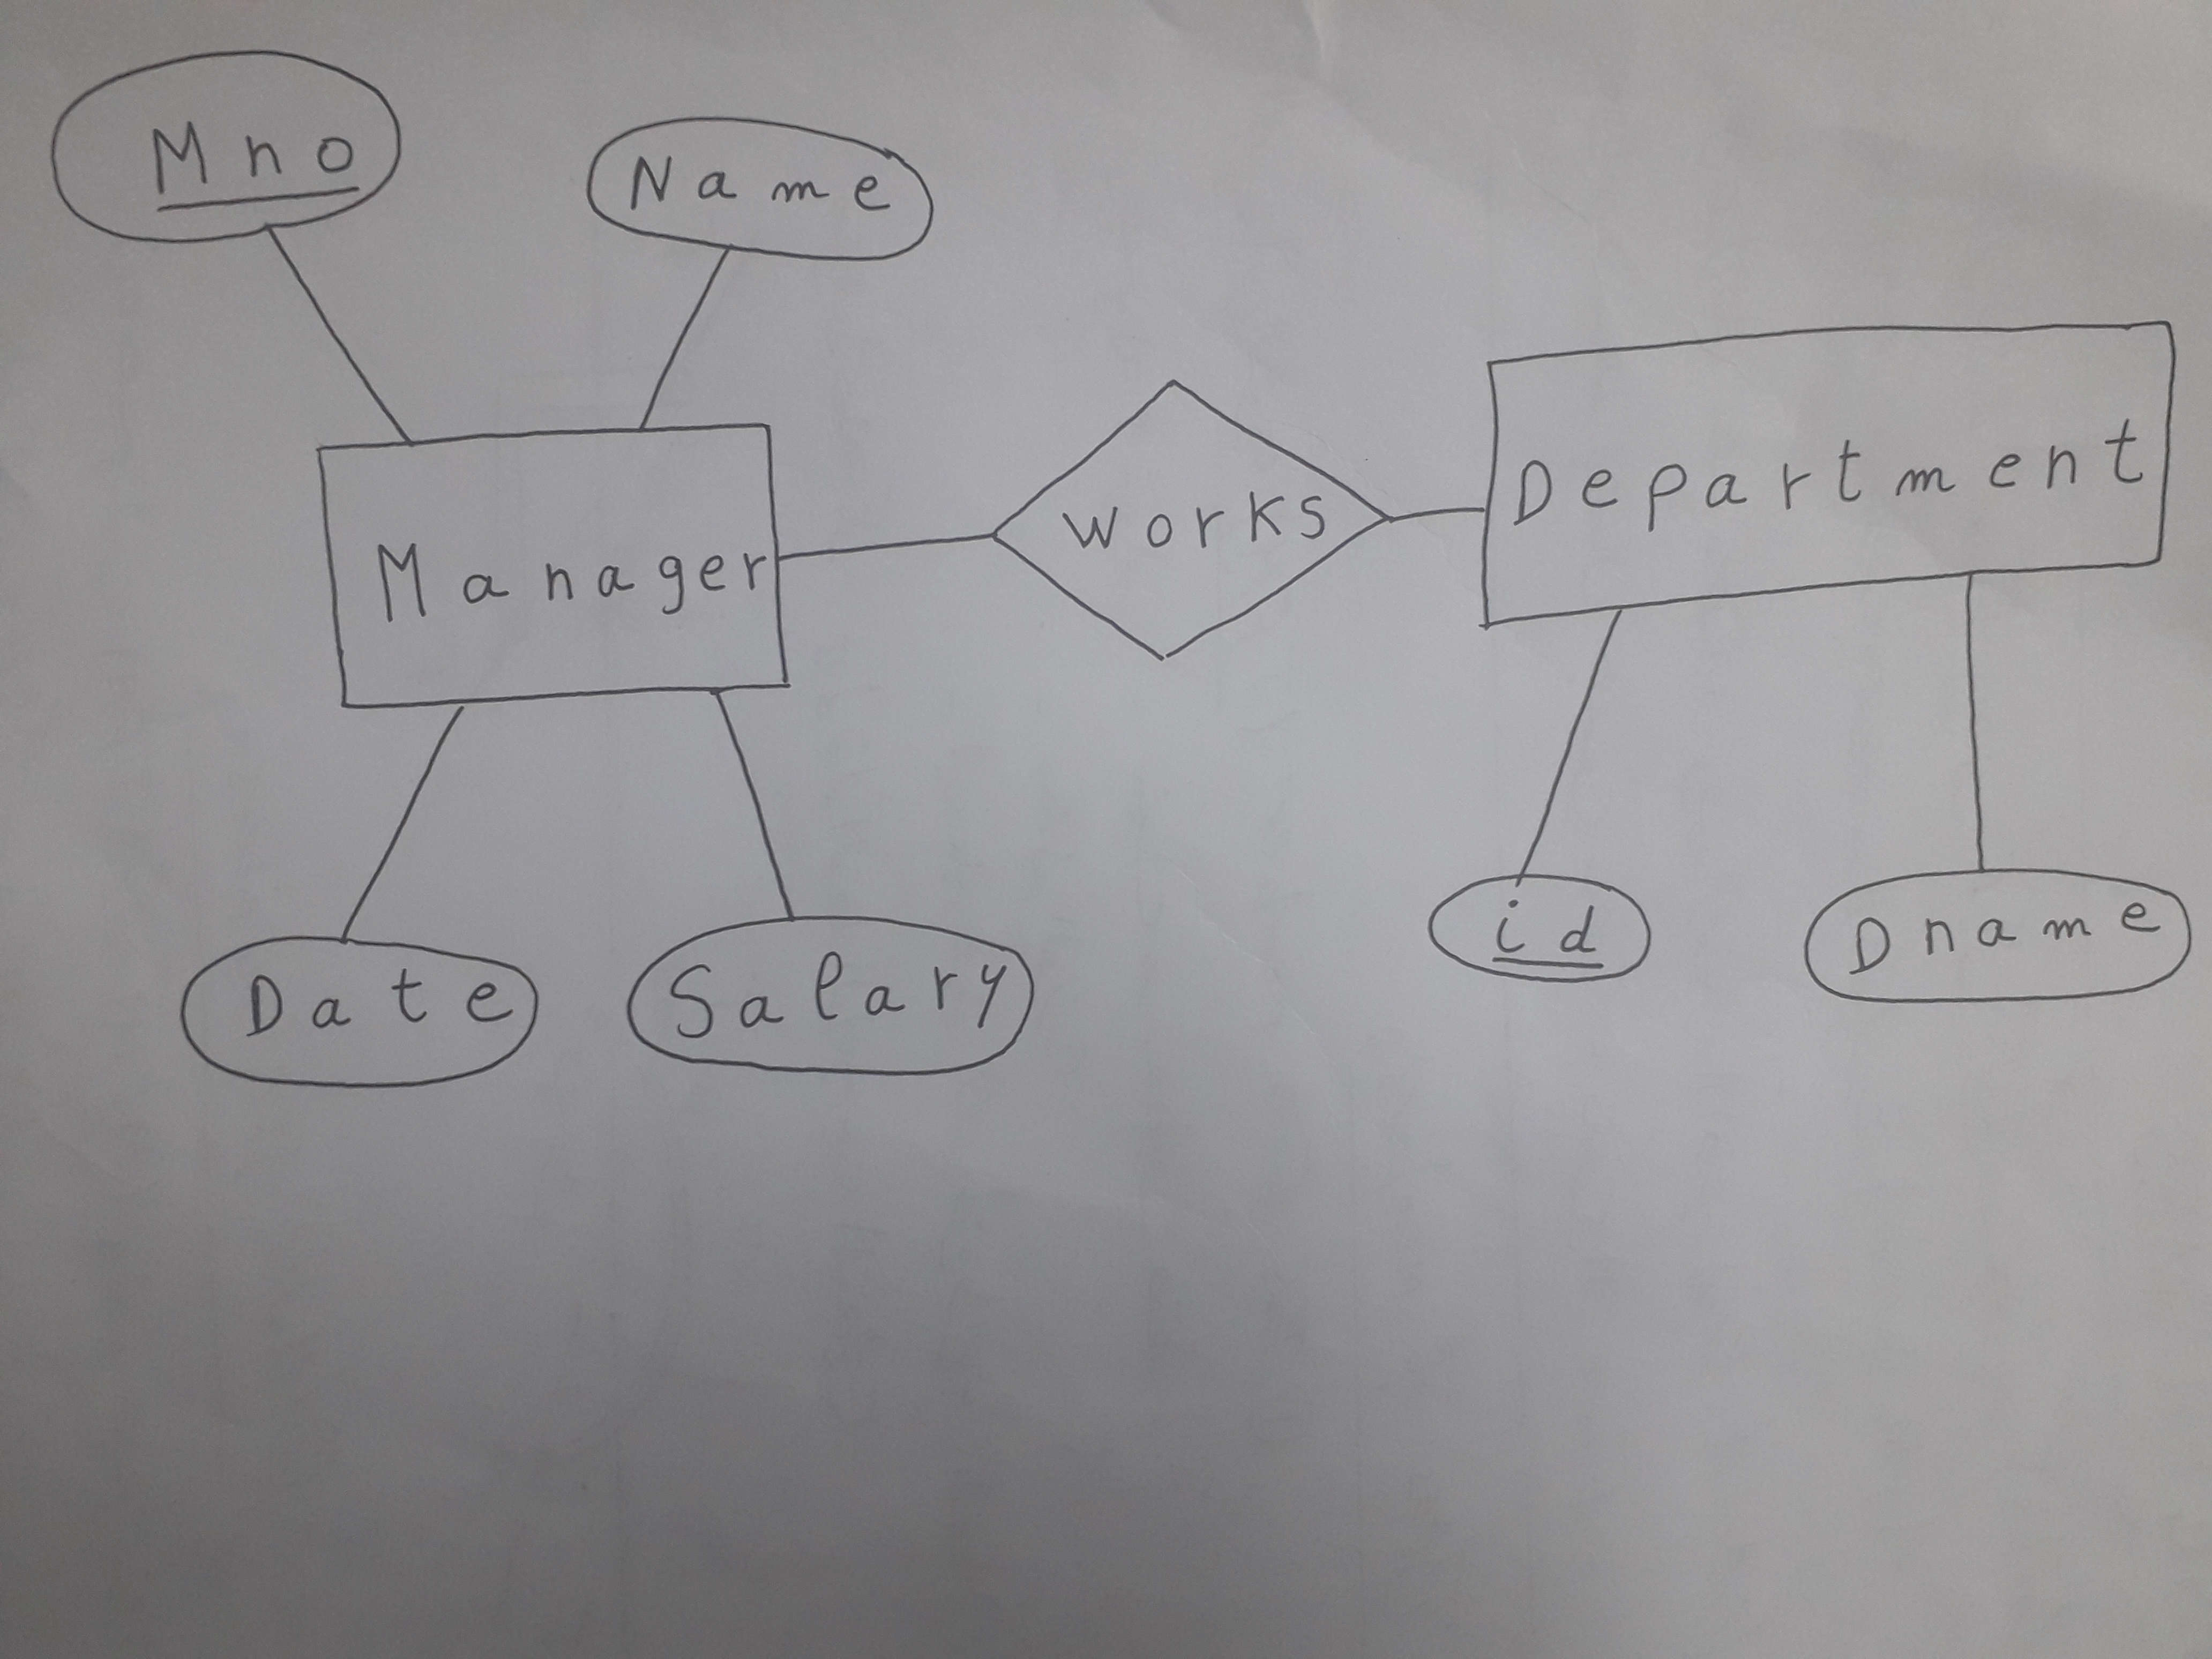 Mno
Name
Manager
works
Department
Date
Salary
id
Dname